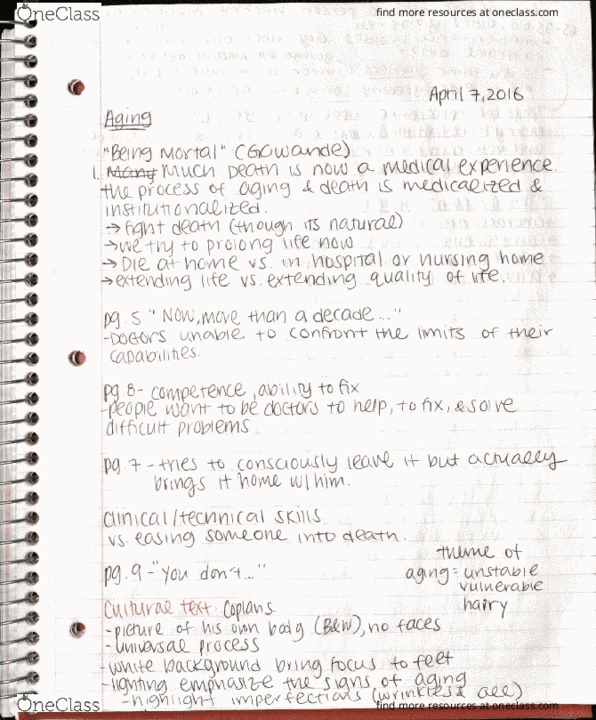 OneClass
find more resources at oneclass.com
April 7, 2016
Aging
"Being Mortal" (Gawande)
1. Many Much Death is now a medical experience.
the process of aging & death is medicalized &
institutionalized.
→ fight death (though its natural)
→ we try to prolong life now
→ Die at home vs. in hospital or nursing home
→ extending life vs. extending quality of life.
pg. 5 "Now, more than a decade..."
-Doctors unable to confront the limits of their
capabilities.
pg 8- competence, ability to fix
-people want to be doctors to help, to fix, & solve
difficult problems
pg. 7 - tries to consciously leave it but actually
brings it home w/ him.
clinical/technical skills
vs. easing someone into death.
pg. 9 - "You don't..."
theme of
aging = unstable
vulnerable
hairy
Cultural text: Coplans.
-picture of his own body (B&W), no faces
-universal process
-white background bring focus to feet
-lighting emphasize the signs of aging
-highlight imperfections (wrinkles & all)
OneClass
find more resources at oneclass.com